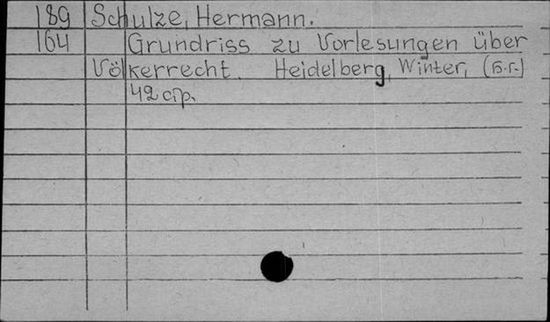 189 Schulze, Hermann.
164 Grundriss zu Vorlesungen über
Völkerrecht. Heidelberg, Winter, (б.г.)
42 стр.